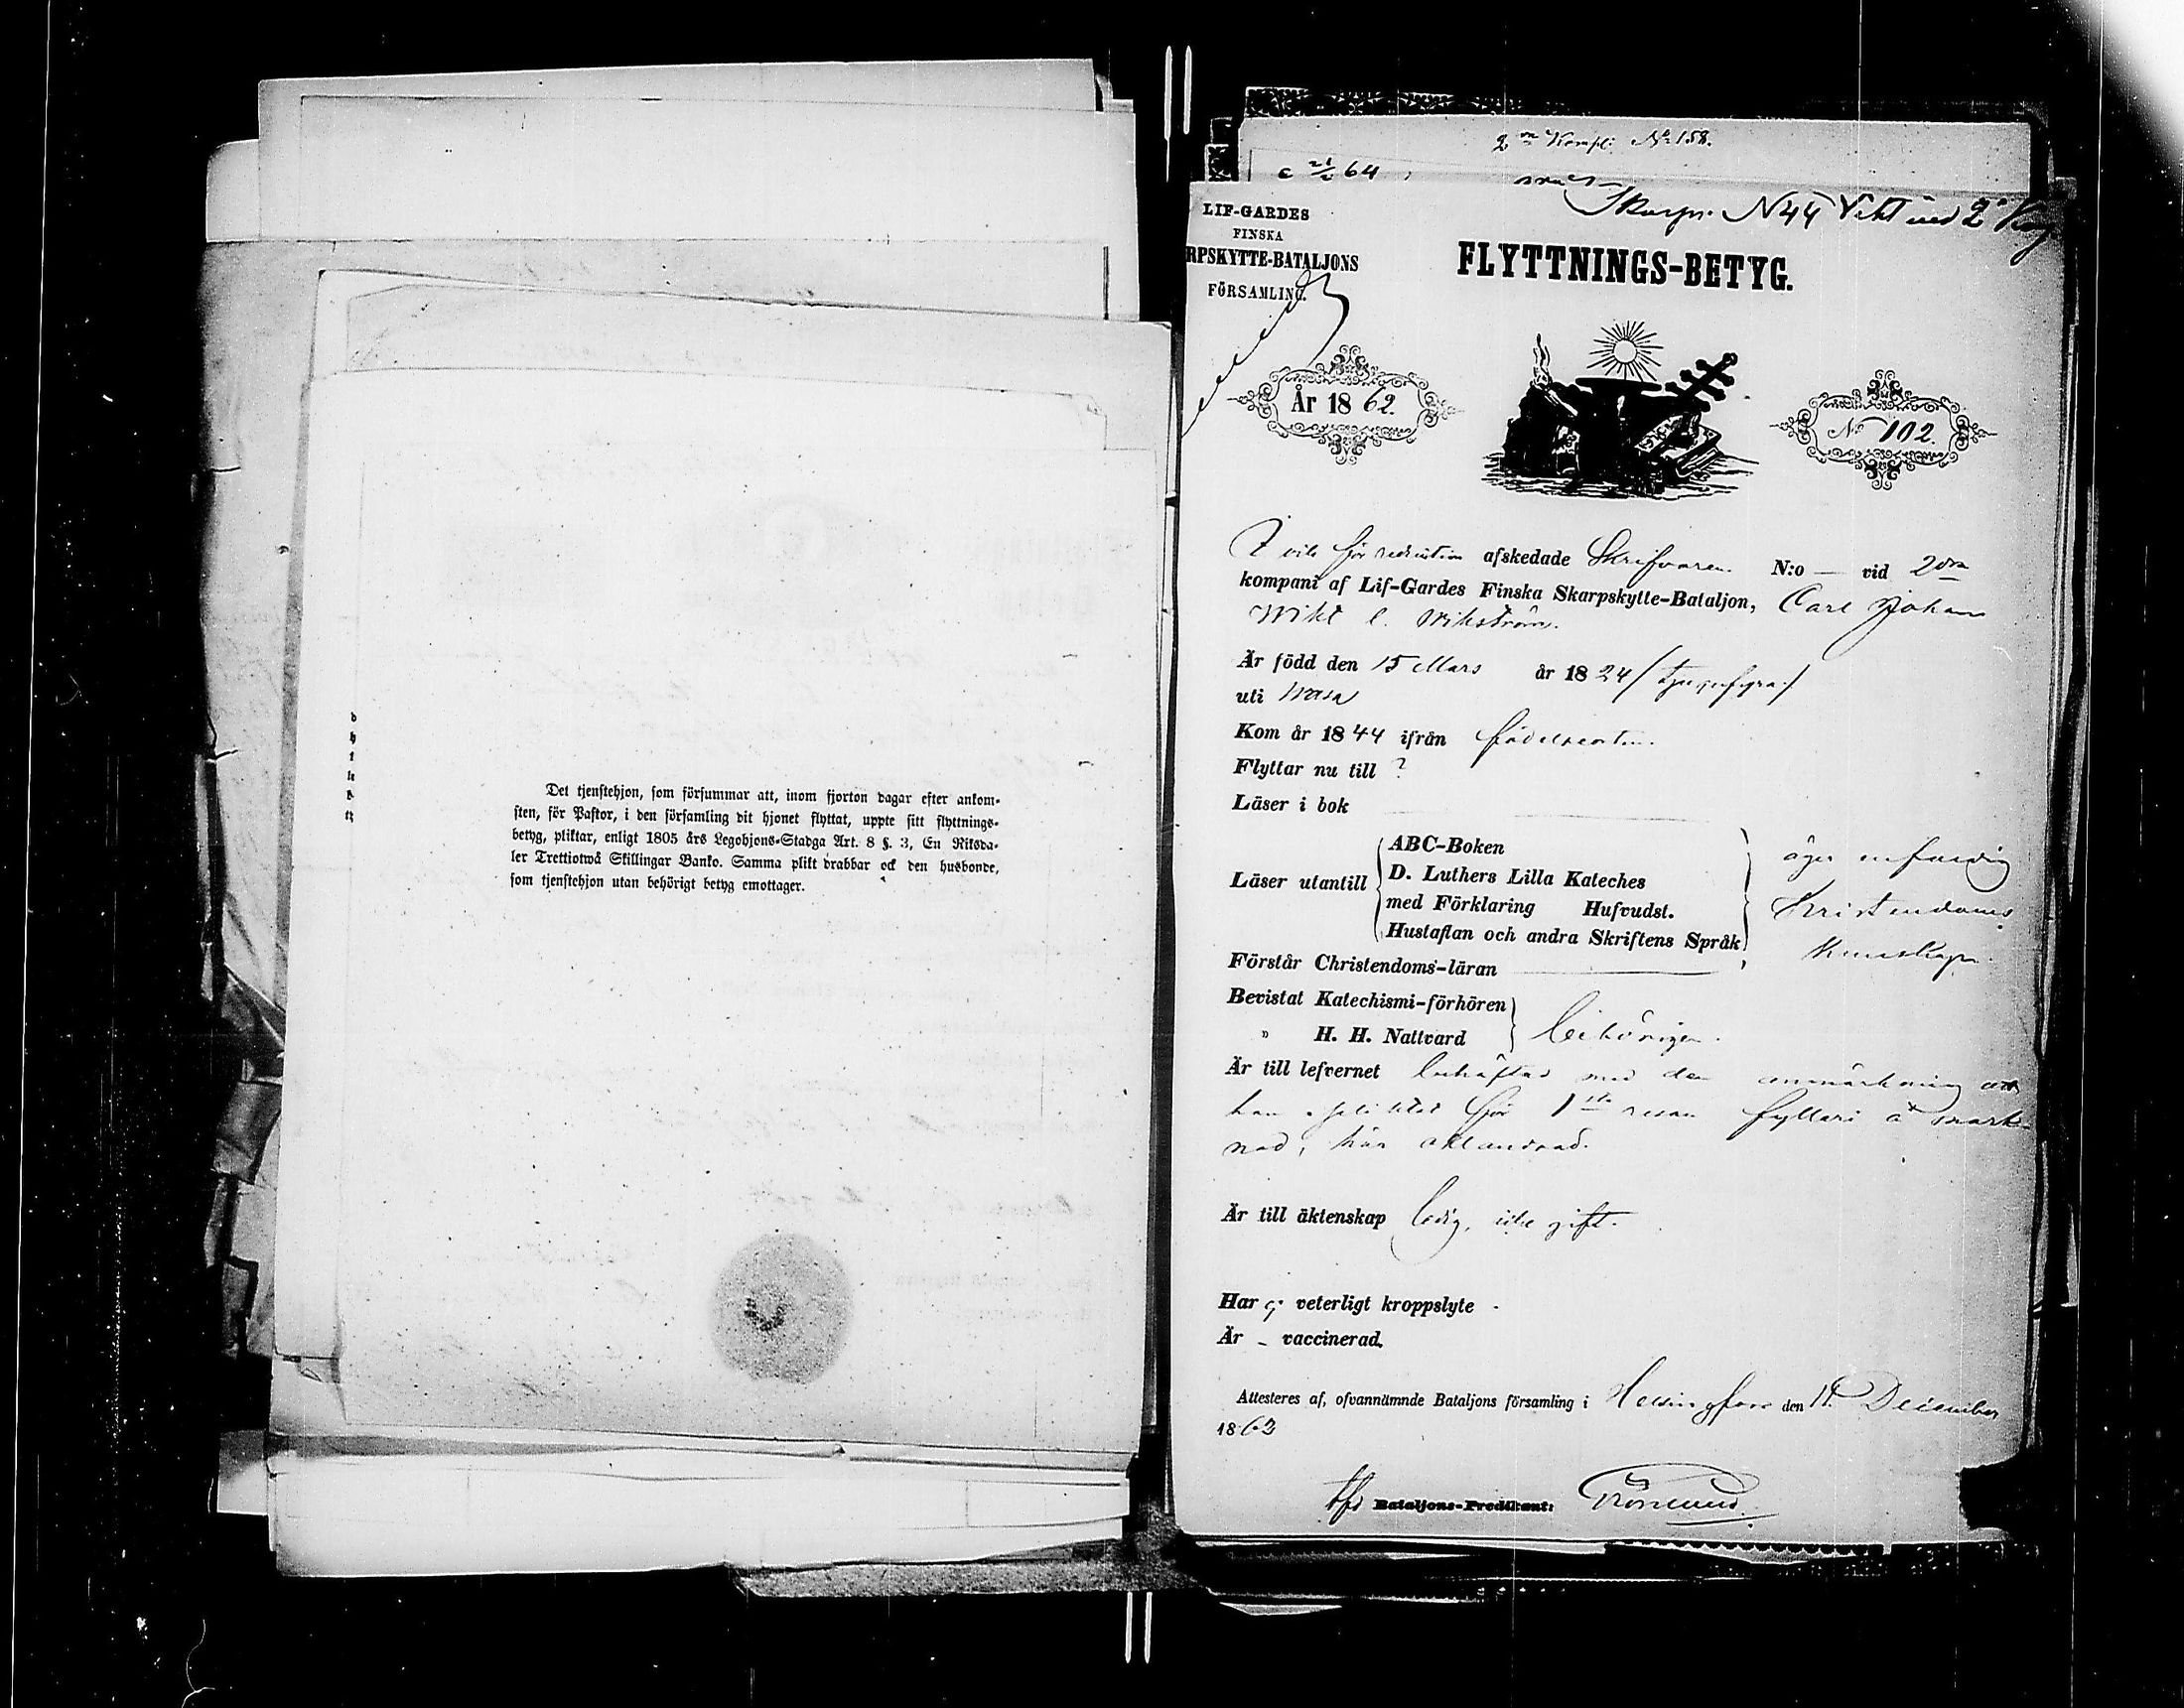 Det tjenstehjon, som försummar att, inom fjorton dagar efter ankom-
sten, för Pastor, i den församling dit hjonet flyttat, uppte sitt flyttnings-
betyg, pliktar, enligt 1805 års Legohjons-Stadga Art. 8 §. 3, En Riksda-
ler Trettiotwå Skillingar Banko. Samma plikt drabbar ock den husbonde,
som tjenstehjon utan behörigt betyg emottager.
2 Kompi No 158.
64
Skarpr. N 44 vid 2
LIF-GARDES
FINSKA
RPSKYTTE-BATALJONS
FÖRSAMLING.
FLYTTNINGS-BETYG.
År 1862.
No 102.
för reduction afskedade Skrifvaren N:o — vid 2dra
kompani af Lif-Gardes Finska Skarpskytte-Bataljon, Carl Johan
Wikström.
Är född den 15 Mars år 1824 (tjugufyra)
uti Wasa
Kom år 1844 ifrån födelseorten.
Flyttar nu till ?
Läser i bok
Läser utantill
ABC-Boken
D. Luthers Lilla Kateches
med Förklaring Hufvudst.
Hustaflan och andra Skriftens Språk
äger
Kristendoms
kunskap.
Förstår Christendoms-läran
Bevistat Katechismi-förhören
" H. H. Nattvard
behörigen.
Är till lefvernet behäftad med den anmärkning att
han pliktat för 1sta resan fylleri å mark-
nad, här oklandrad.
Är till äktenskap ledig, icke gift.
Har ej veterligt kroppslyte -
Är - vaccinerad.
Attesteres af, ofvannämnde Bataljons församling i Helsingfors den 11 December
1862
Bataljons-Predikant: